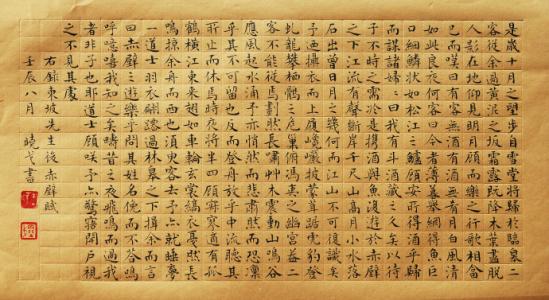 是歲十月之望步自雪堂將歸於臨皋二
客從余過黃泥之坂霜露既降木葉盡脫
人影在地仰見明月顧而樂之行歌相答
已而嘆曰有客無酒有酒無肴月白風清
如此良夜何客曰今者薄暮舉網得魚巨
口細鱗狀如松江之鱸顧安所得酒乎歸
而謀諸婦婦曰我有斗酒藏之久矣以待
子不時之需於是攜酒與魚復遊於赤壁
之下江流有聲斷岸千尺山高月小水落
石出曾日月之幾何而江山不可復識矣
予迺攝衣而上履巉巖披蒙茸踞虎豹登
虬龍攀栖鶻之危巢俯馮夷之幽宮蓋二
客不能從焉劃然長嘯草木震動山鳴谷
應風起水涌予亦悄然而悲肅然而恐凜
乎其不可留也反而登舟放乎中流聽其
所止而休焉時夜將半四顧寂寥適有孤
鶴橫江東來翅如車輪玄裳縞衣戛然長
鳴掠余舟而西也須臾客去予亦就睡夢
一道士羽衣翩躚過臨皋之下揖余而言
曰赤壁之遊樂乎問其姓名俛而不答嗚
呼噫嘻我知之矣疇昔之夜飛鳴而過我
者非子也耶道士顧咲予亦驚寤開戶視
之不見其處
右錄東坡先生後赤壁賦
壬辰八月 曉戈書